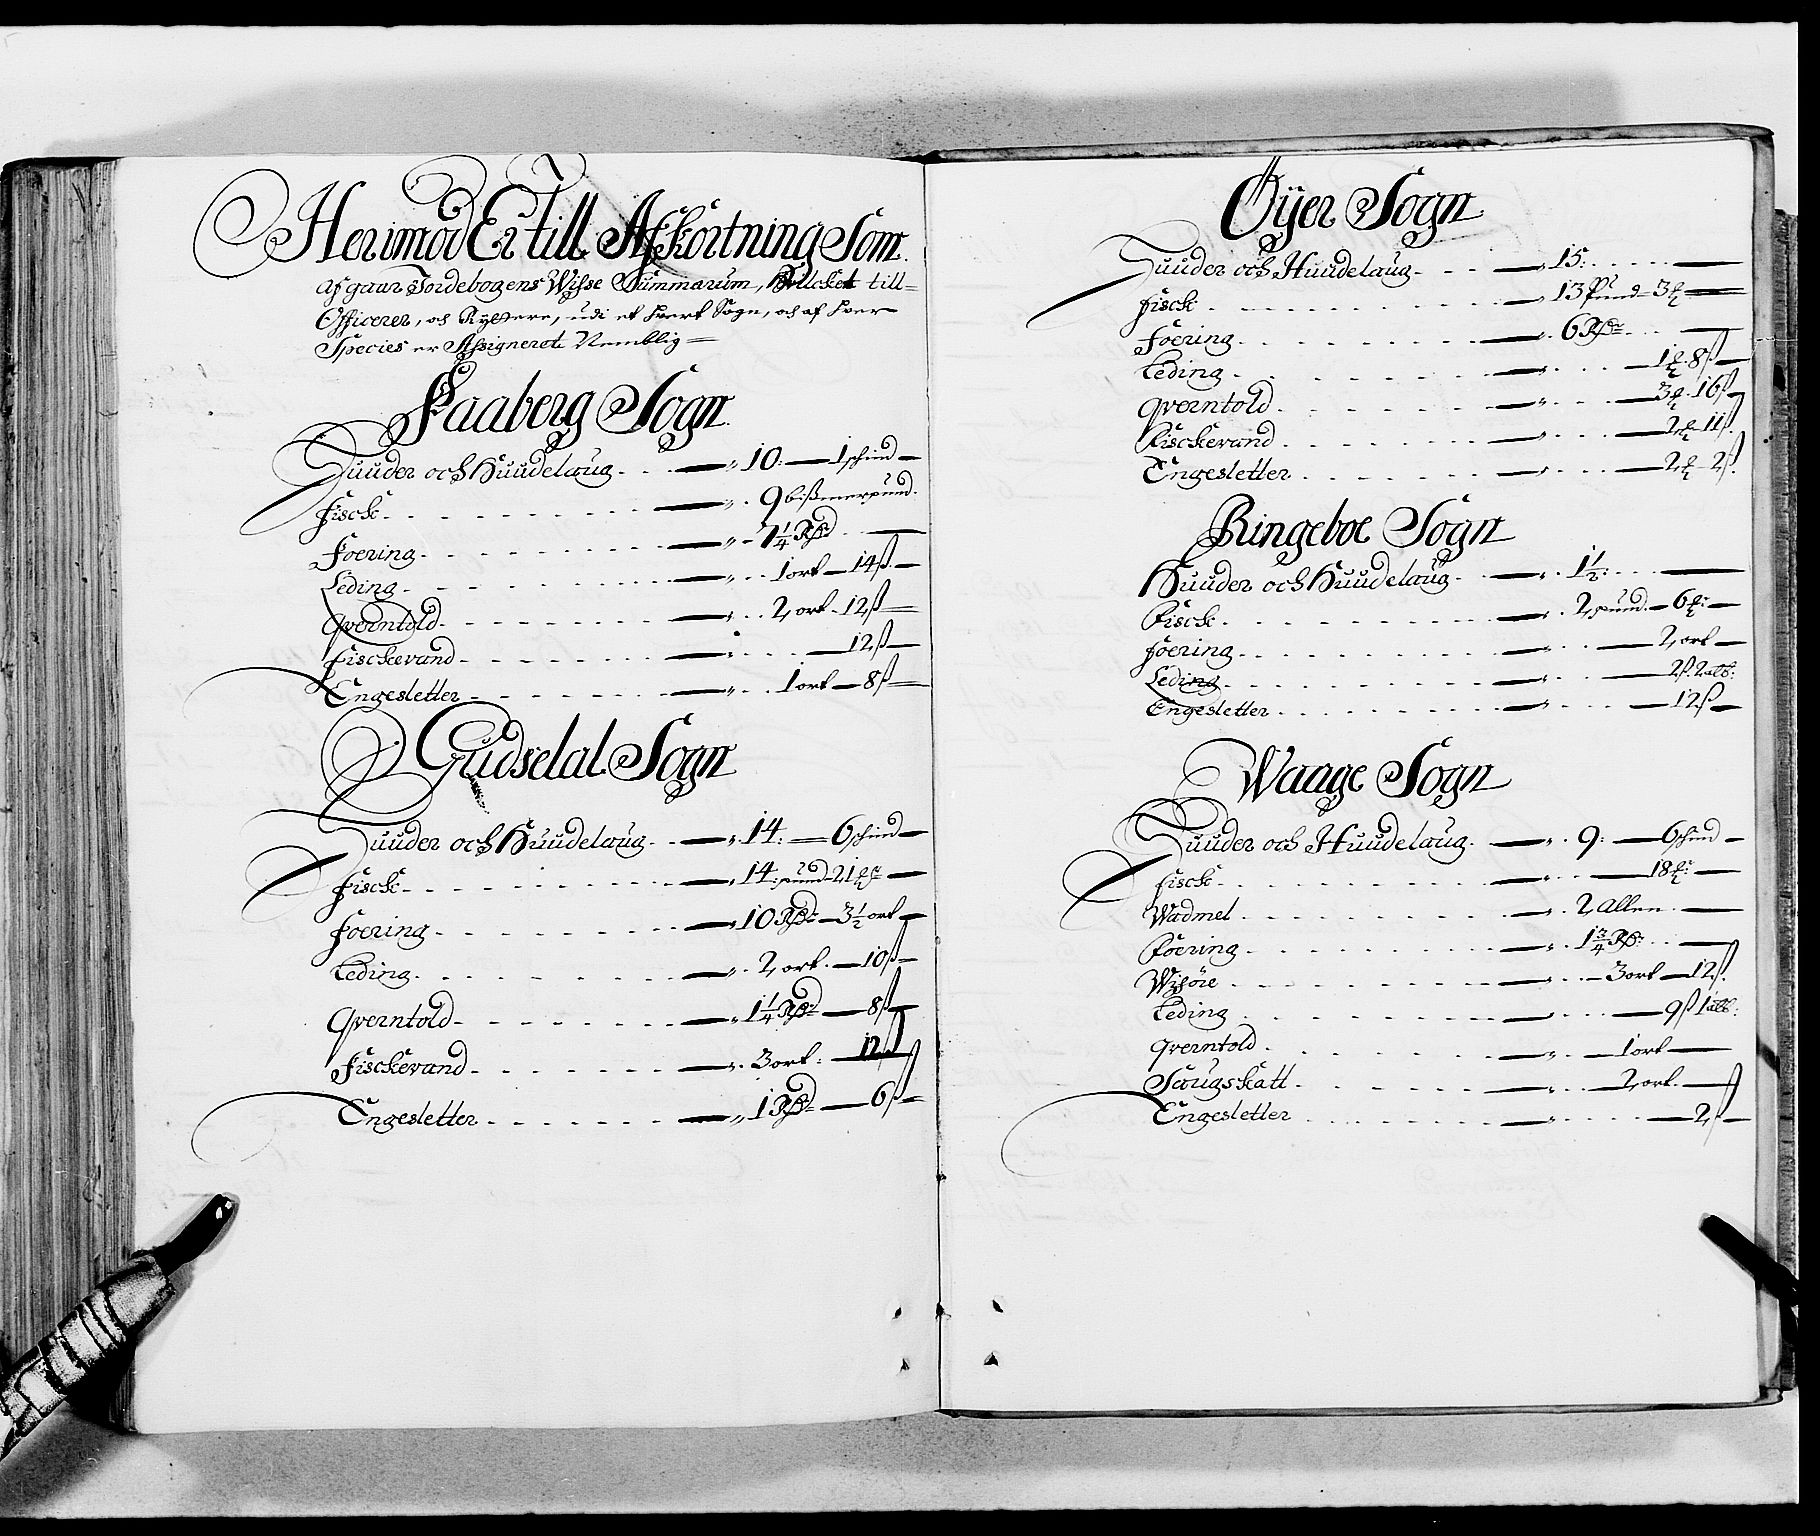 Herimod Er till Afkortning Som
afgaar Jordebogens Wisse Summarum, Hvilcket till
Officerer, och Ryttere, udi et hvert Sogn, och af hver
Species er Assigneret Nemblig
Faaberg Sogn
Huuder och Huudelaug 10: 1 schind
Fisck 9 bißmerpund
Foering 7 1/4 Rßd
Leding 1 ort 14 ß
Qverntold 2 ort 12 ß
Fisckevand 12 ß
Engesletter 1 ort 8 ß
Gudselal Sogn
Huuder och Huudelaug 14: 6 schind
Fisck 14 pund 21 ℔
Foering 10 Rßd 3 1/2 ort
Leding 2 ort 10 ß
Qverntold 1 1/4 Rßd 8 ß
Fisckevand 3 ort 12 ß
Engesletter 1 Rßd 6 ß
Öÿer Sogn
Huuder och Huudelaug 15:
Fisck 13 Pund 3 ℔
Foering 6 Rßd
Leding 1 ℔ 8 ß
Qverntold 3 ℔ 16 ß
Fisckevand 2 ℔ 11 ß
Engesletter 2 ℔ 2 ß
Ringeboe Sogn
Huuder och Huudelaug 1 1/2:
Fisck 2 pund 6 ℔
Foering 2 ort
Leding 2 ß 2 alb:
Engesletter 12 ß
Waage Sogn
Huuder och Huudelaug 9: 6 schind
Fisck 18 ℔
Wadmel 2 Allen
Foering 1 3/4 Rß:
Wisöre 3 ort 12 ß
Leding 9 ß 1 alb:
Qverntold 1 ort
Saugskatt 2 ort
Engesletter 2 ß